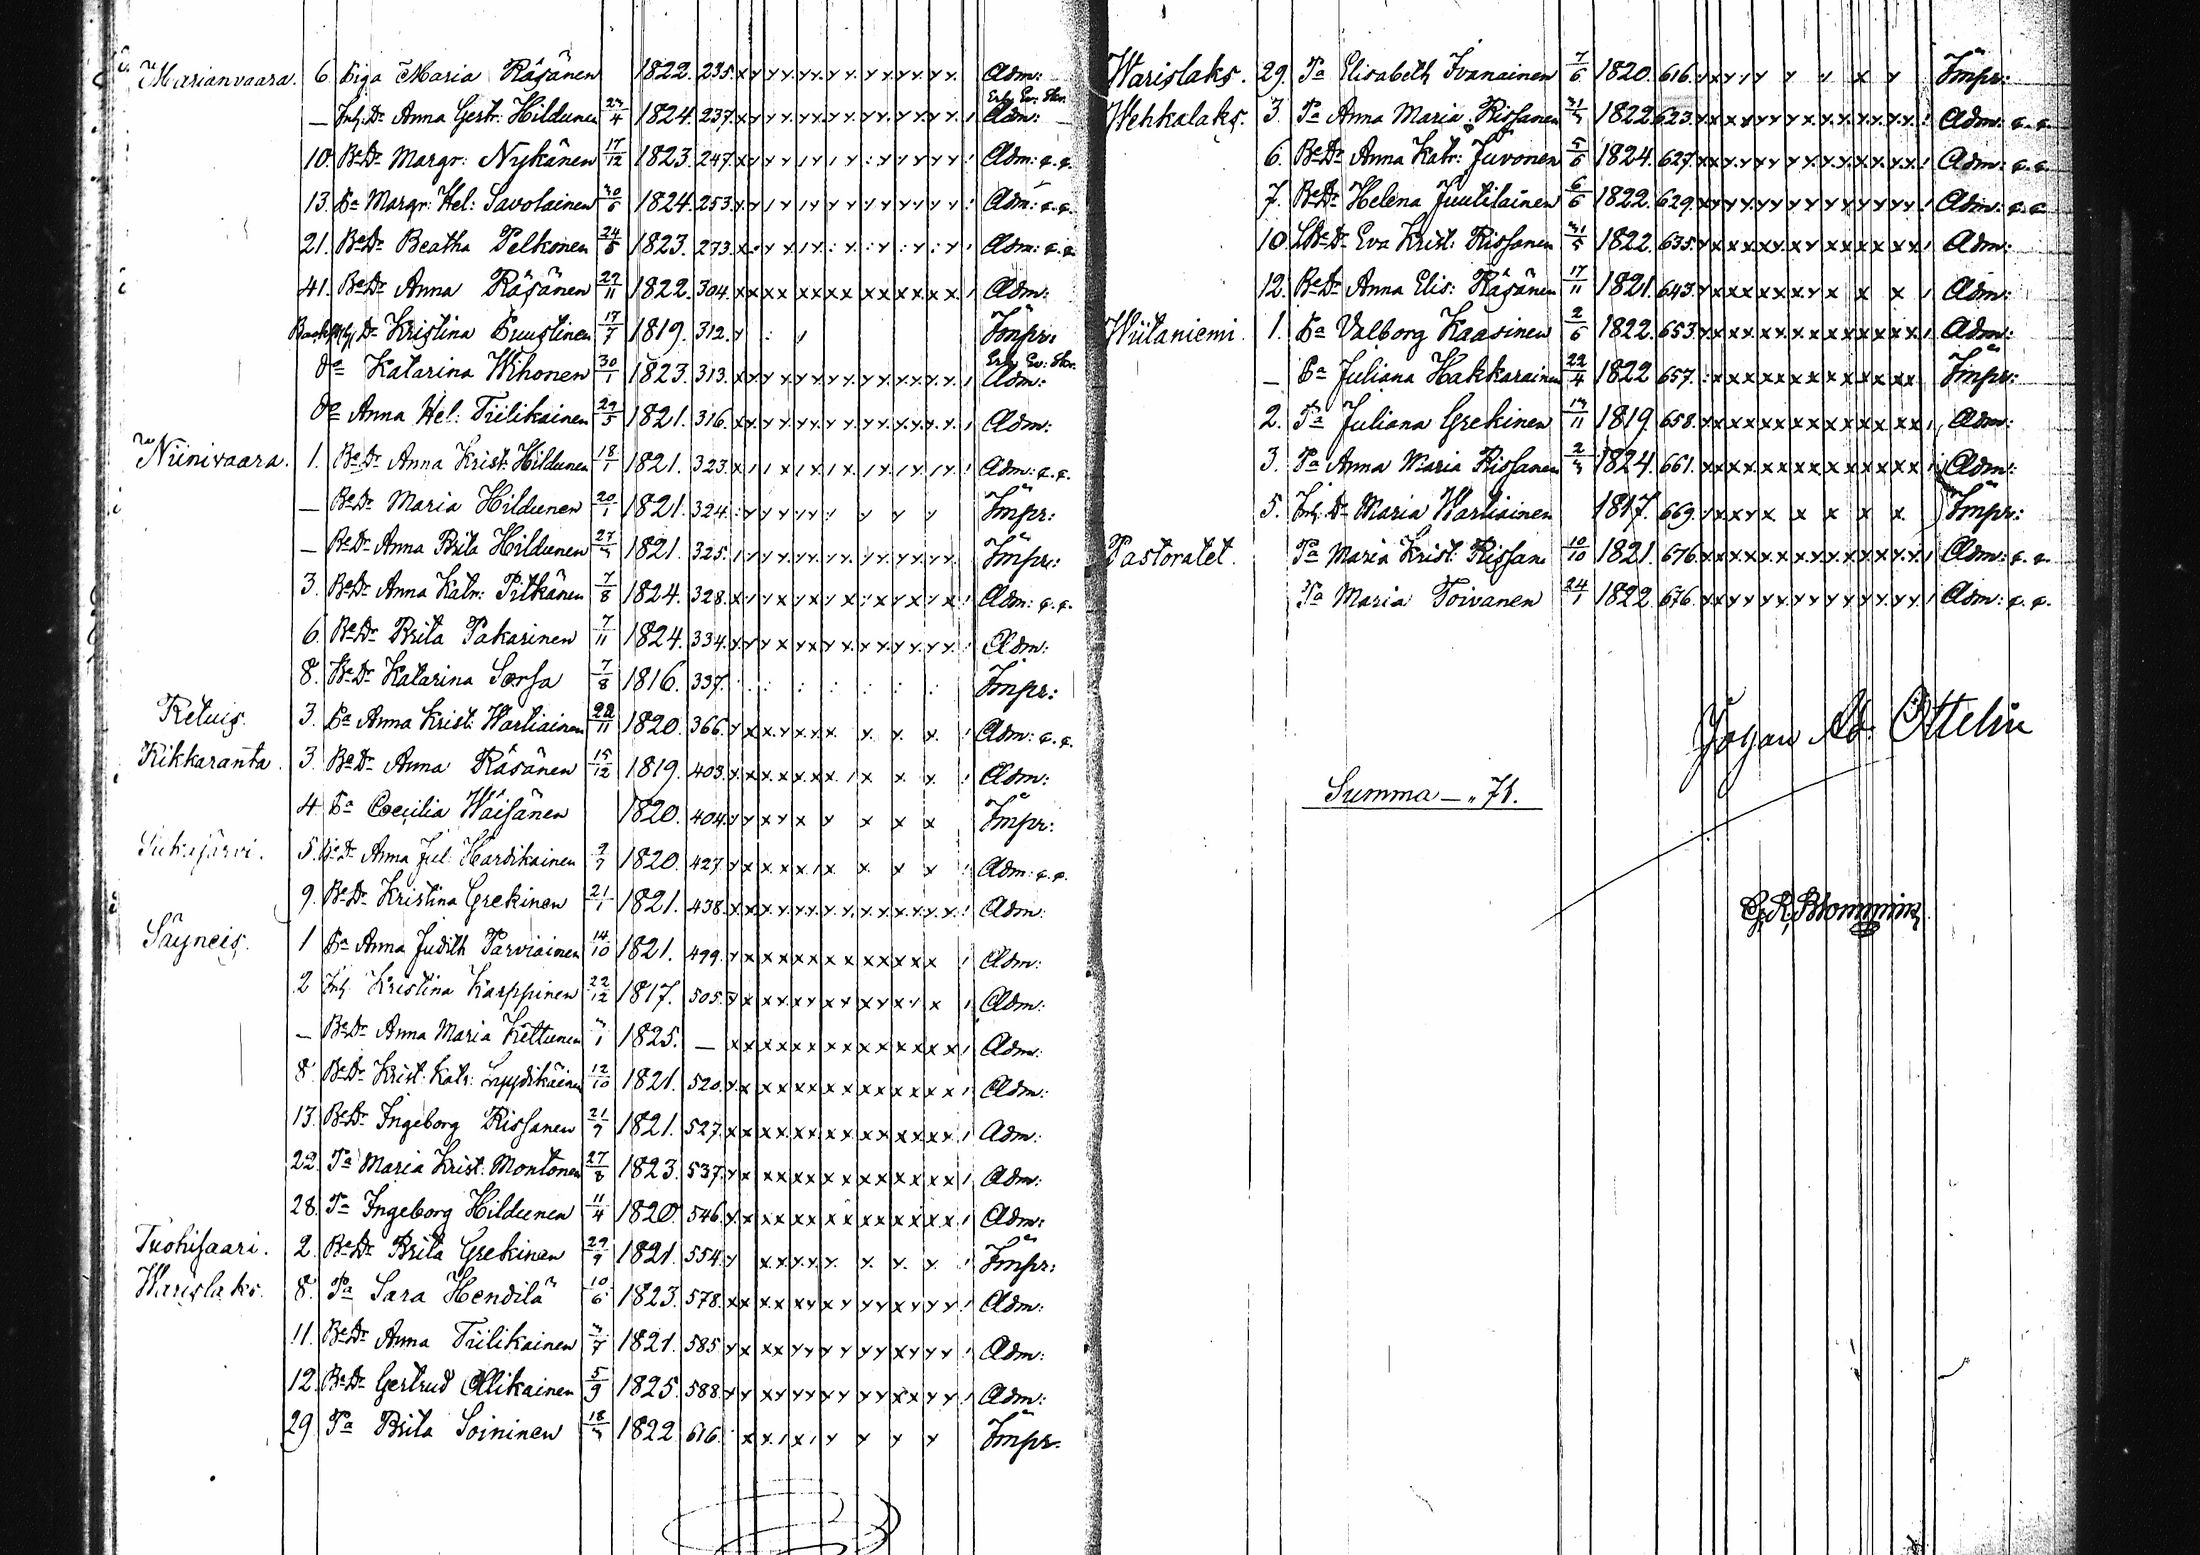 Marianvaara. 6. Piga Maria Räsänen 1822. 235. Adm:
— Inh: Dr Anna Gertr: Hildunen 1824. 237. Adm:
10. Be Dr Margr: Nykänen 17/12 1823. 247. Adm: q.q.
13. Pa Margr: Hel: Savolainen 30/6 1824. 253. Adm: q.q.
21. Be Dr Beatha Pelkonen 24/5 1823. 273. Adm: q.q.
41. Be Dr Anna Räsänen 29/11 1822. 304. Adm:
Dr Kristina Puustinen 17/7 1819. 312. Impr:
do Katarina Wihonen 30/1 1823. 313. Adm:
do Anna Hel: Tiilikainen 29/5 1821. 316. Adm:
Niinivaara. 1. Be Dr Anna Krist: Hildunen 18/1 1821. 323. Adm: q.q.
— Be Dr Maria Hildunen 20/1 1821. 324. Impr:
— Be Dr Anna Brita Hildunen 1821. 325. Impr:
3. Be Dr Anna Katr: Pitkänen 7/8 1824. 328. Adm: q.q.
6. Be Dr Brita Pakarinen 7/11 1824. 334. Adm:
8. Be Dr Katarina Sorsa 7/8 1816. 337. Impr:
Retuis. 3. Pa Anna Krist: Wartiainen 22/11 1820. 366. Adm: q.q.
Rikkaranta. 3. Be Dr Anna Räsänen 15/12 1819. 403. Adm:
4. Pa Cecilia Wäisänen 1820. 404. Impr:
Siikajärvi. 5. Be Dr Anna Jul: Hardikainen 1820. 427. Adm: q.q.
9. Be Dr Kristina Grekinen 21/1 1821. 438. Adm:
Säyneis. 1 Pa Anna Judith Parviainen 14/10 1821. 499. Adm:
2 Inh: Kristina Karppinen 22/12 1817. 505. Adm:
— Be Dr Anna Maria Kettunen 1825. — Adm:
8. Be Dr Krist: Katr: Lyydikäinen 12/10 1821. 520. Adm:
13. Be Dr Ingeborg Rissanen 21/9 1821. 527. Adm:
22. Pa Maria Krist: Montonen 27/8 1823. 537. Adm:
28. Pa Ingeborg Hildunen 11/4 1820. 546. Adm:
Tuohisaari. 2. Be Dr Brita Grekinen 29/9 1821. 554. Impr:
Warislaks. 8. Pa Sara Hendilä 10/6 1823. 578. Adm:
11. Be Dr Anna Tiilikainen 1821. 585. Adm:
12. Be Dr Gertrud Ollikainen 5/9 1825. 588. Adm:
29 Pa Brita Soininen 1822 616. Impr:
Warislaks. 29. Pa Elisabeth Ivanainen 7/6 1820. 616. Impr:
Wehkalaks. 3. Pa Anna Maria Rissanen 1822. 623. Adm: q.q.
6. Be Dr Anna Katr: Juvonen 5/6 1824. 627. Adm: q.q.
7. Be Dr Helena Juutilainen 6/6 1822. 629. Adm: q.q.
10. Be Dr Eva Krist: Rissanen 31/5 1822. 635. Adm:
12. Be Dr Anna Elis: Räsänen 17/11 1821. 643. Adm:
Wiitaniemi. 1. Pa Valborg Kaasinen 2/6 1822. 653. Adm:
— Pa Juliana Hakkarainen 22/4 1822 657. Impr:
2. Pa Juliana Grekinen 1819 658. Adm:
3. Pa Anna Maria Rissanen 1824. 661. Adm:
5. Inh: Dr Maria Wartiainen 1817. 669. Impr:
Pastoratet. Pa Maria Krist: Rissan. 10/10 1821. 676. Adm: q.q.
Pa Maria Toivanen 24/1 1822. 676. Adm: q.q.
Johan Ad. Ottelin
Summa — " 71.